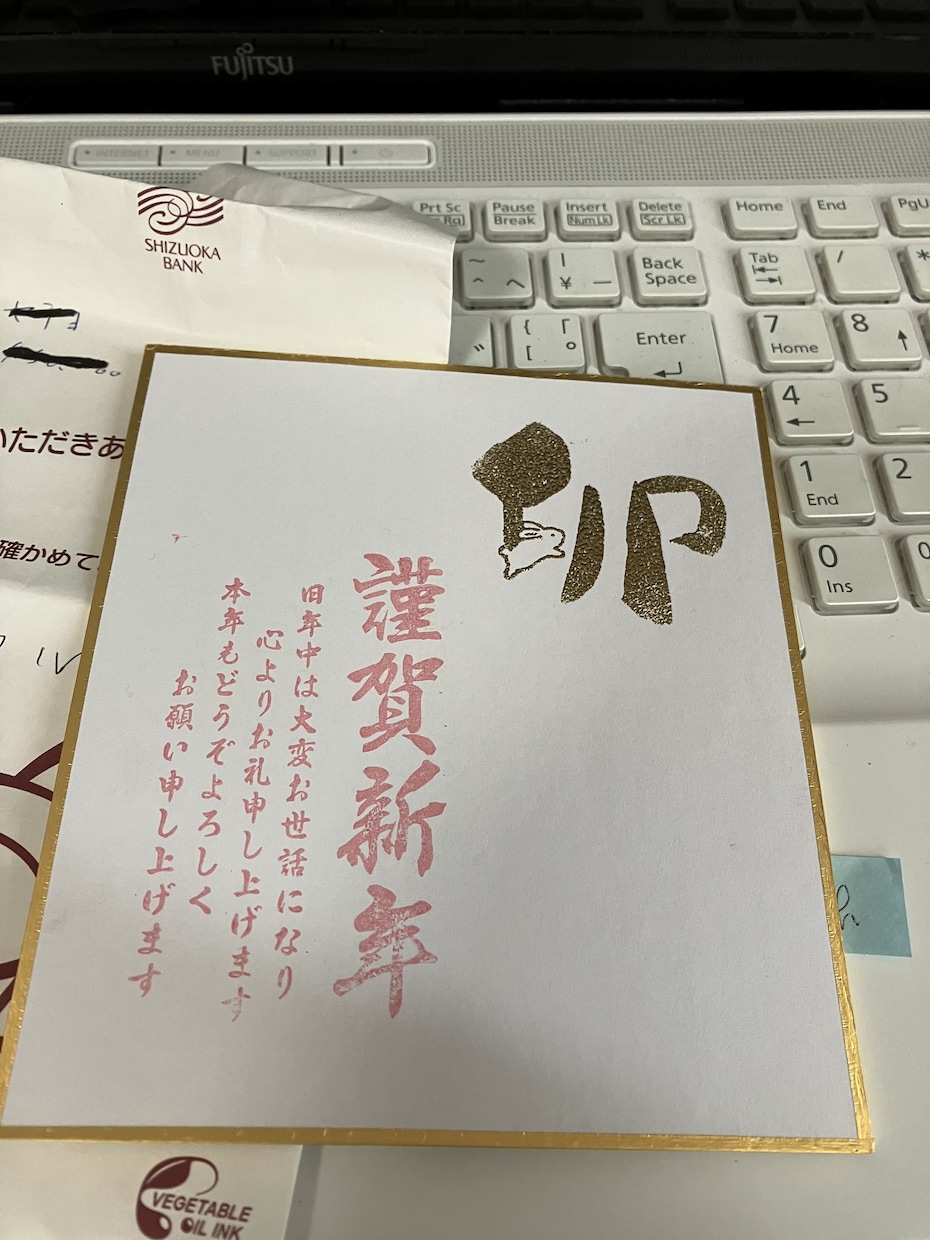 FUJITSU
INTERNET
MENU
SUPPORT
SHIZUOKA
BANK
Prt Sc
Pause
Break
Insert
Num Lk
Delete
Scr Lk
Home
End
PgU
~
^
へ
|
¥
ー
Back
Space
Tab
/
*
{
「
[
°
Enter
7
Home
8
4
5
1
End
2
0
Ins
いただきあ
確かめて
卯
謹賀新年
旧年中は大変お世話になり
心よりお礼申し上げます
本年もどうぞよろしく
お願い申し上げます
VEGETABLE
OIL INK